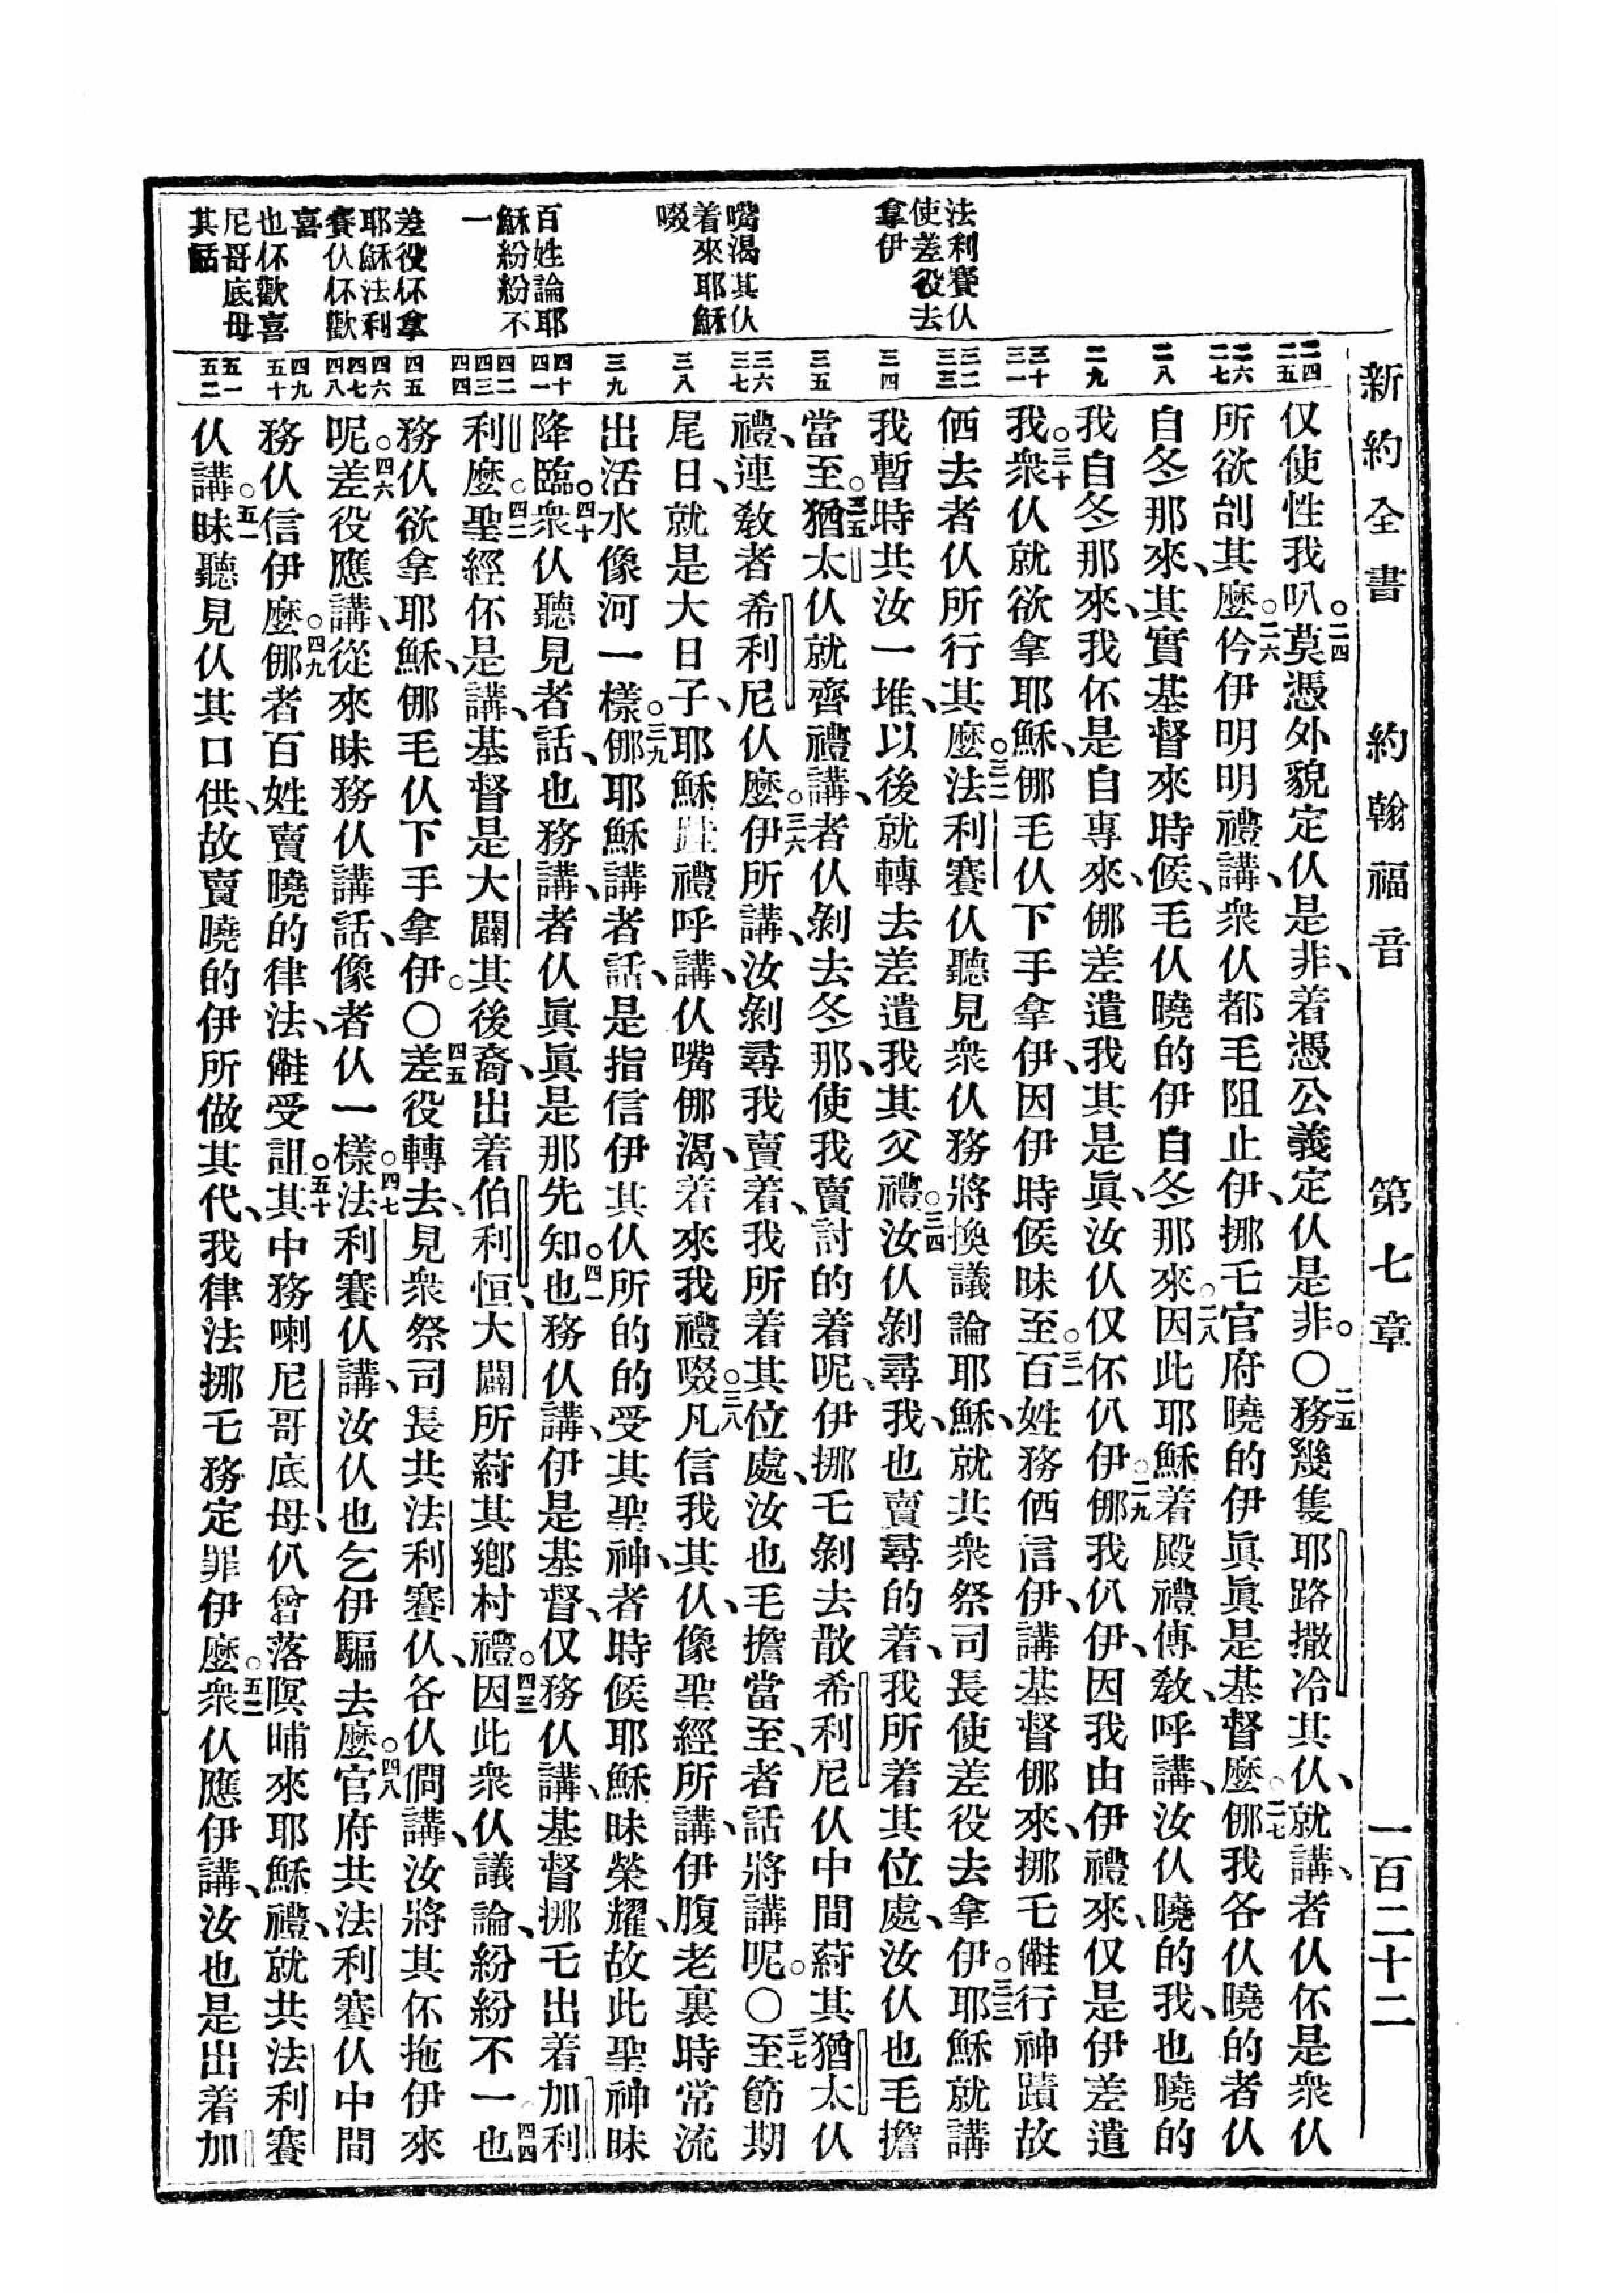 新約全書 約翰福音 第七章 一百二十二
法利賽仈
使差役去
拿伊
嘴渴其仈
着來耶穌
啜
百姓論耶
穌紛紛不
一
差役伓拿
耶穌法利
賽仈伓歡
喜
也伓歡喜
尼哥底母
其話
二四 二五 二六 二七 二八 二九 三十 三一 三二 三三 三四 三五 三六 三七 三八 三九 四十 四一 四二 四三 四四 四五 四六 四七 四八 四九 五十 五一 五二
仅使性我叭。二四莫憑外貌定仈是非、着憑公義定仈是非。〇二五務幾隻耶路撒冷其仈、就講、者仈伓是衆仈
所欲刣其麼。二六仱伊明明禮講、衆仈都毛阻止伊、挪乇官府曉的伊眞眞是基督麼。二七䣝我各仈曉的者仈
自冬那來、其實基督來時候、毛仈曉的伊自冬那來。二八因此耶穌着殿禮傳敎、呼講、汝仈曉的我、也曉的
我自冬那來、我伓是自專來、䣝差遣我其是眞、汝仈仅伓仈伊。二九䣝我仈伊、因我由伊禮來、仅是伊差遣
我。三十衆仈就欲拿耶穌、䣝毛仈下手拿伊、因伊時候昧至。三一百姓務価信伊、講基督䣝來、挪乇䧴行神蹟故
価去者仈所行其麼。三二法利賽仈聽見衆仈務將換議論耶穌、就共衆祭司長使差役去拿伊。三三耶穌就講
我暫時共汝一堆、以後就轉去差遣我其父禮。三四汝仈剝尋我、也賣尋的着、我所着其位處、汝仈也毛擔
當至。三五猶太仈就齊禮講、者仈剝去冬那、使我賣討的着呢、伊挪乇剝去散希利尼仈中間葤其猶太仈
禮、連敎者希利尼仈麼。三六伊所講、汝剝尋我賣着、我所着其位處、汝也毛擔當至、者話將講呢。〇三七至節期
尾日、就是大日子、耶穌跬禮呼講、仈嘴䣝渴、着來我禮啜。三八凡信我其仈、像聖經所講、伊腹老裏時常流
出活水像河一樣。三九䣝耶穌講者話、是指信伊其仈所的的受其聖神、者時候耶穌昧榮耀、故此聖神昧
降臨。四十衆仈聽見者話、也務講、者仈眞眞是那先知。四一也務仈講、伊是基督、仅務仈講、基督挪乇出着加利
利麼。四二聖經伓是講、基督是大闢其後裔、出着伯利恒、大闢所葤其鄕村禮。四三因此衆仈議論、紛紛不一。四四也
務仈欲拿耶穌、䣝毛仈下手拿伊。〇四五差役轉去、見衆祭司長共法利賽仈、各仈僩講、汝將其伓拖伊來
呢。四六差役應講、從來昧務仈講話、像者仈一樣。四七法利賽仈講、汝仈也乞伊騙去麼。四八官府共法利賽仈中間
務仈信伊麼。四九䣝者百姓賣曉的律法、䧴受詛。五十其中務喇尼哥底母、仈曾落暝晡來耶穌禮、就共法利賽
仈講。五一昧聽見仈其口供、故賣曉的伊所做其代、我律法挪乇務定罪伊麼。五二衆仈應伊講、汝也是出着加